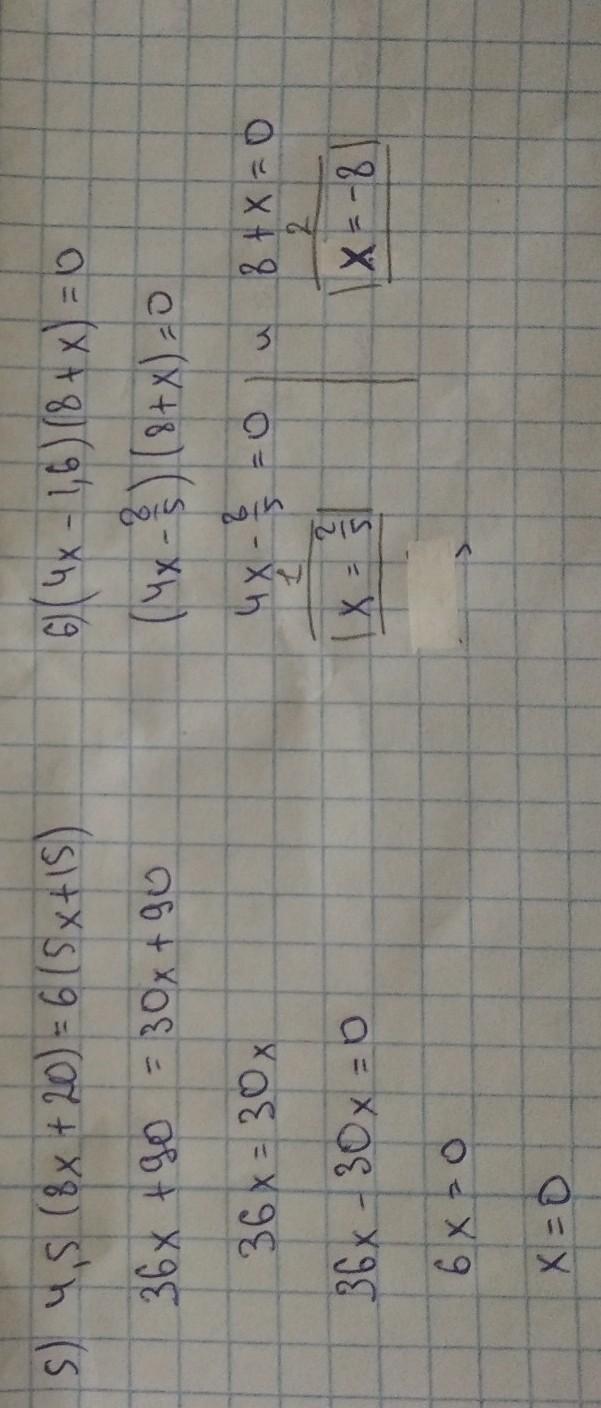 5) 4,5 (8x + 20) = 6 (5x + 15)
36x + 90 = 30x + 90
36x = 30x
36x - 30x = 0
6x = 0
x = 0
6) (4x - 1,6) (8 + x) = 0
(4x - 8/5) (8 + x) = 0
4x - 8/5 = 0 | и 8 + x = 0
1 2
x = 2/5 x = -8